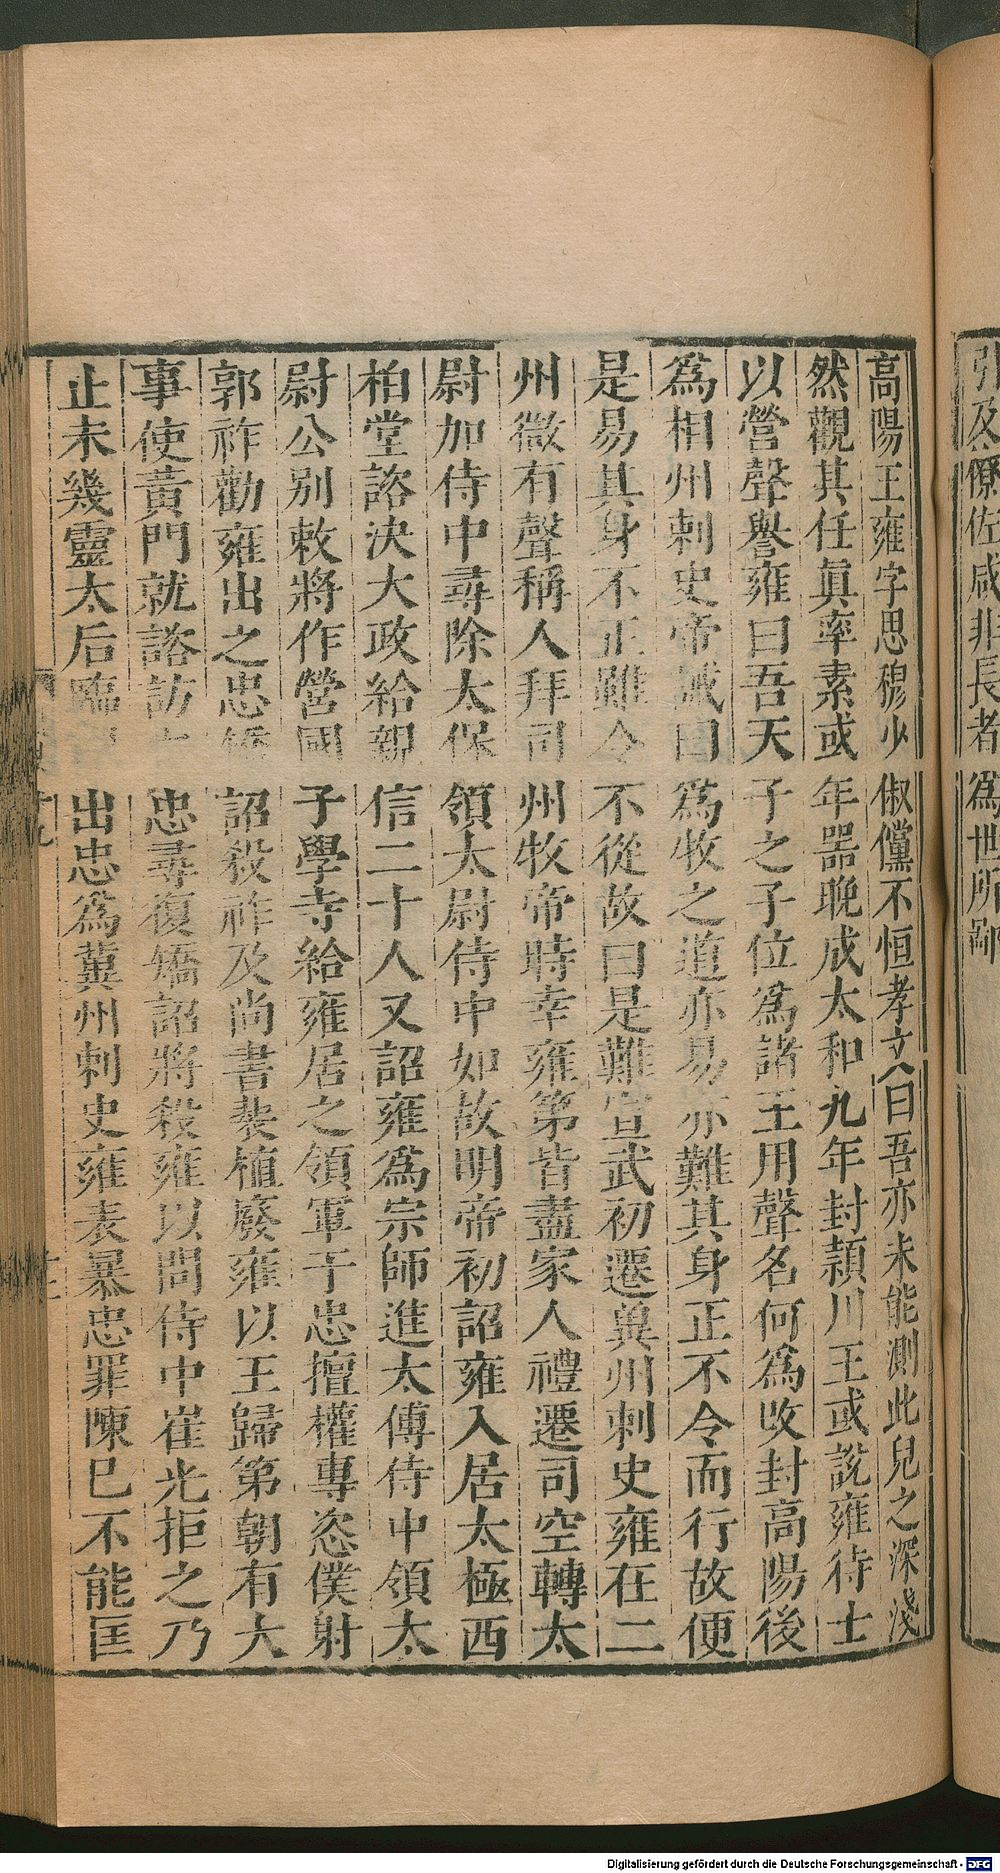 引及僚佐咸非長者爲世所鄙
高陽王雍字思穆少俶儻不恒孝文曰吾亦未能測此兒之深淺
然觀其任眞率素或年器晚成太和九年封潁川王或說雍待士
以營聲譽雍曰吾天子之子位爲諸王用聲名何爲改封高陽後
爲相州刺史帝誡曰爲牧之道亦易亦難其身正不令而行故便
是易其身不正雖令不從故曰是難宣武初遷兾州刺史雍在二
州微有聲稱入拜司州牧帝時幸雍第皆盡家人禮遷司空轉太
尉加侍中尋除太保領太尉侍中如故明帝初詔雍入居太極西
柏堂諮決大政給親信二十人又詔雍爲宗師進太傅侍中領太
尉公別敕將作營國子學寺給雍居之領軍于忠擅權專恣僕射
郭祚勸雍出之忠矯詔殺祚及尚書裴植廢雍以王歸第朝有大
事使黃門就諮訪忠尋復矯詔將殺雍以問侍中崔光拒之乃
止未幾靈太后臨出忠爲冀州刺史雍表暴忠罪陳已不能匡
Digitalisierung gefördert durch die Deutsche Forschungsgemeinschaft - DFG